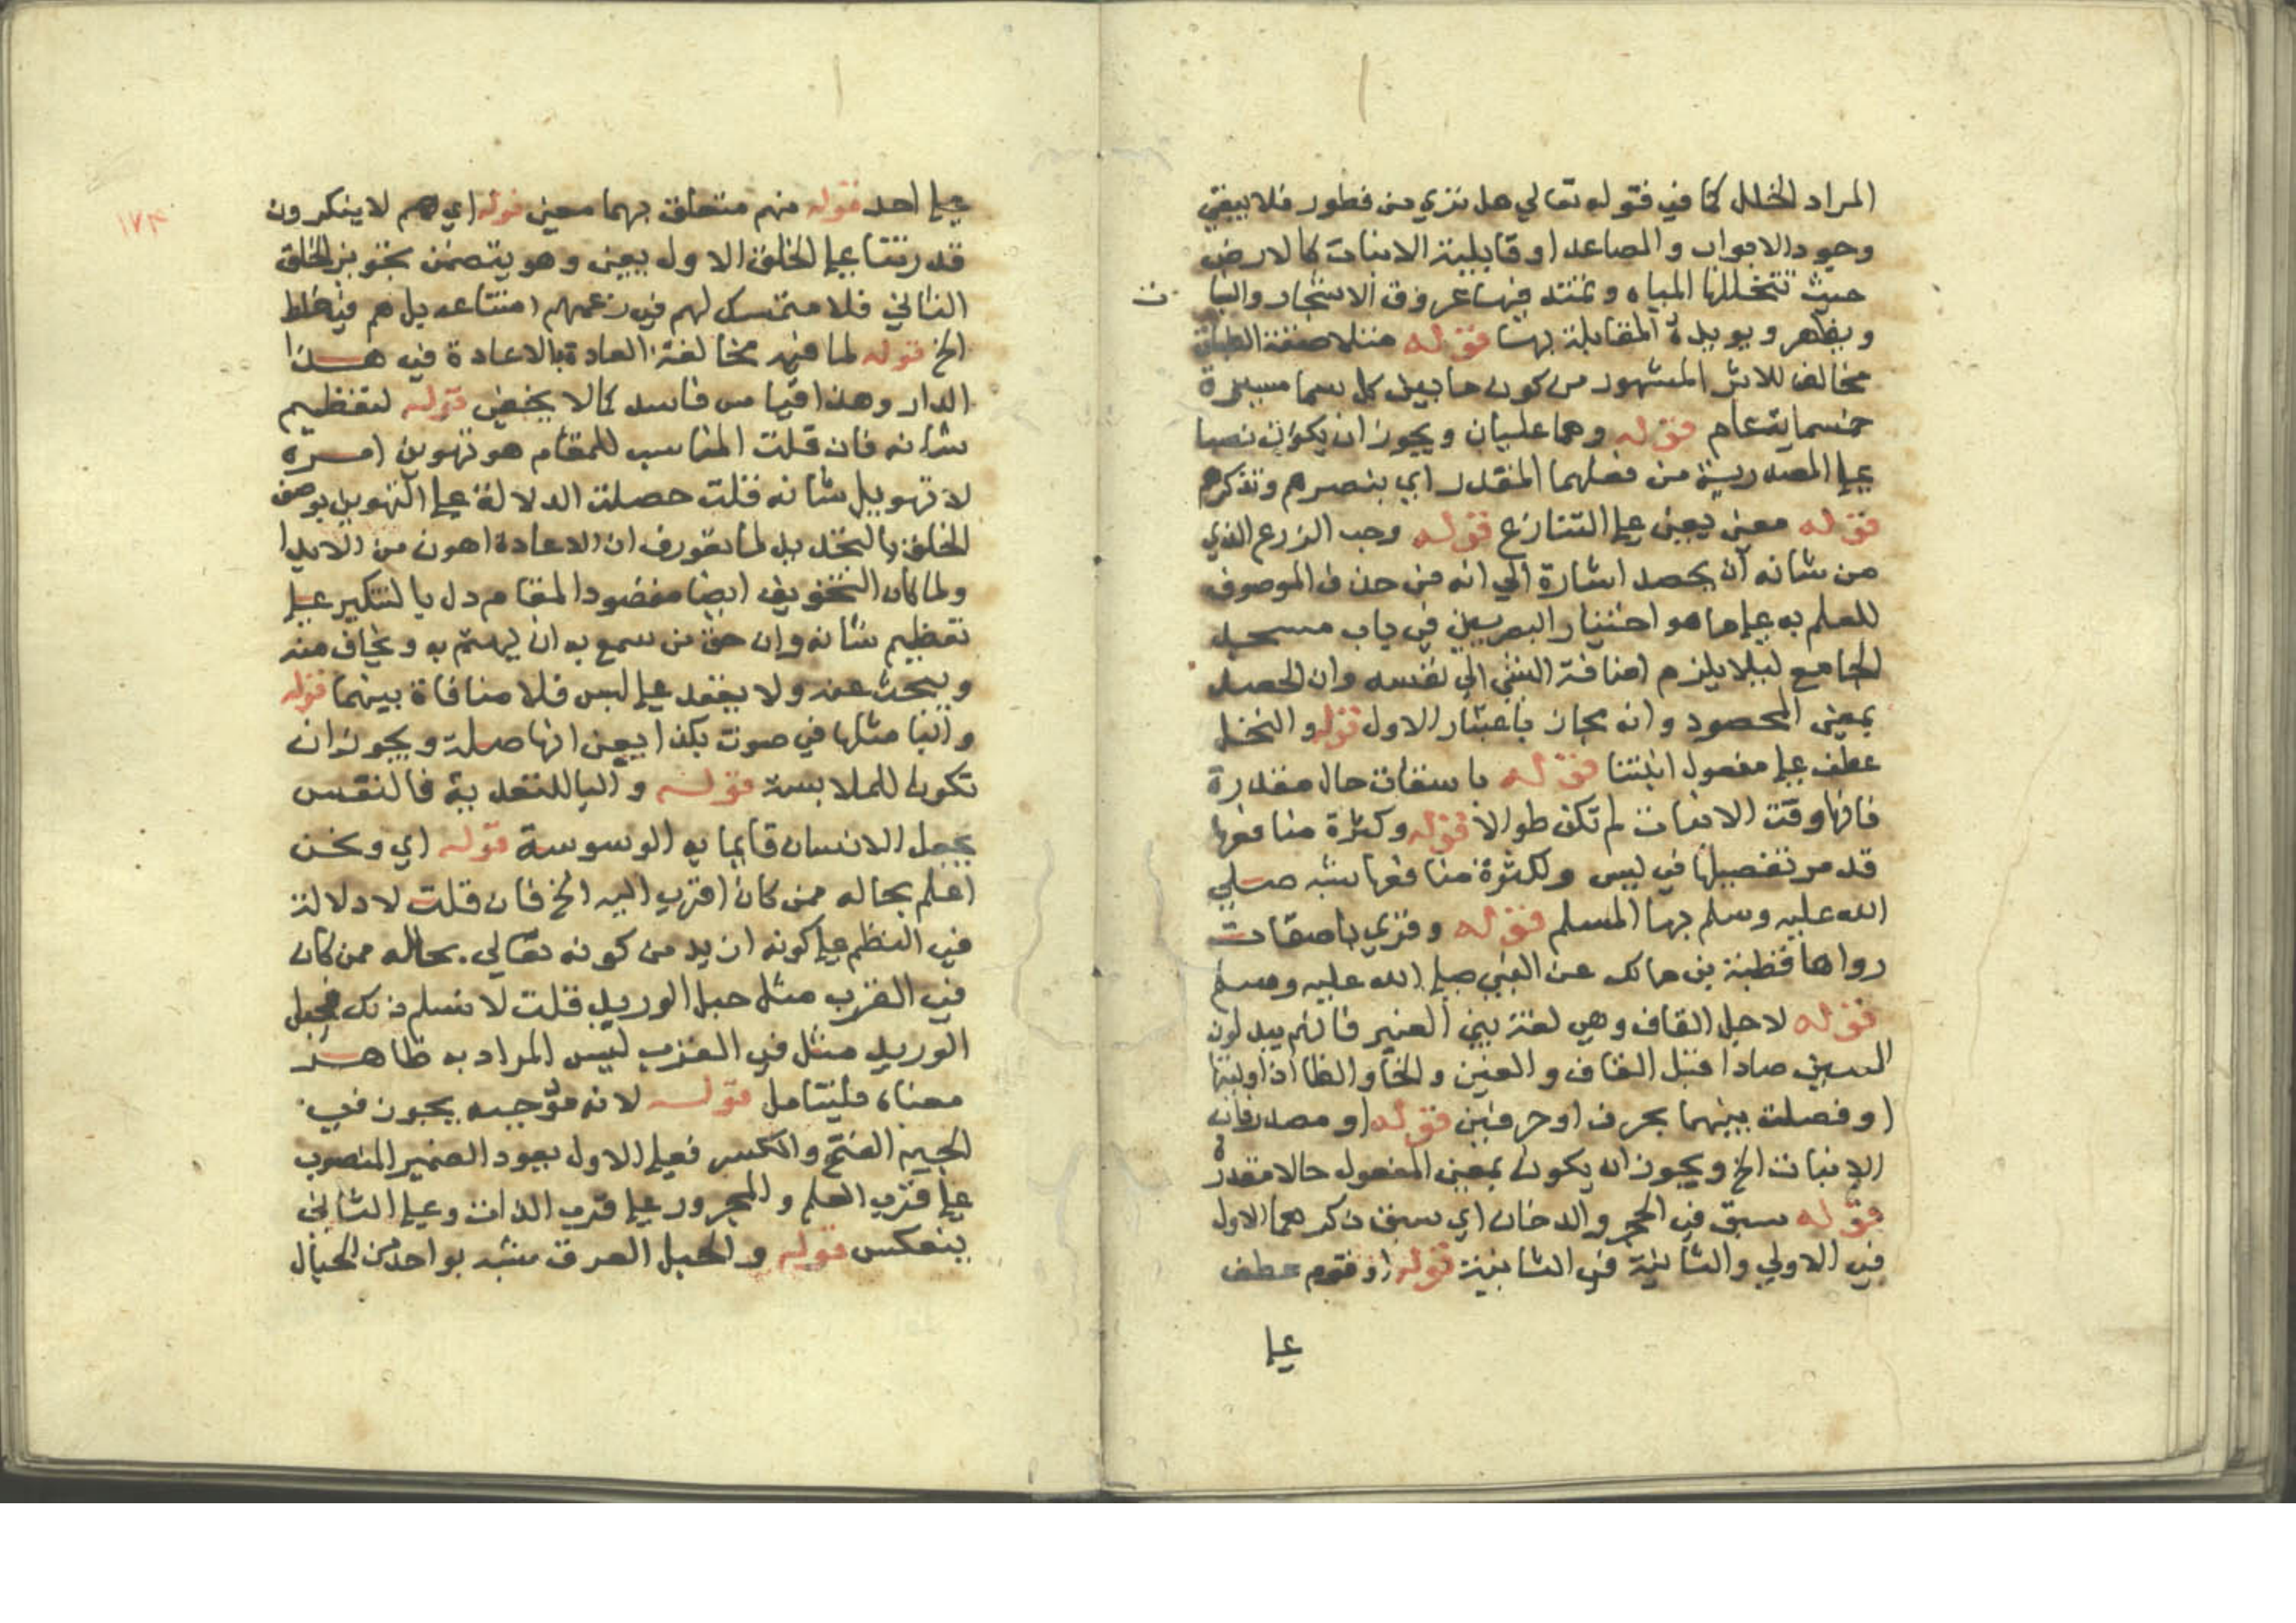 المراد الخلل كما في قوله تعالي هل تري من فطور فلا ينفي
وجود الابواب والمصاعد او قابلية الانبات كالارض
حيث تتخللها المياه وتمتد فيها عروق الاشجار والنبا ت
ويظهر ويويده المقابلة بها قوله متلاصقة الطباق
مخالف للاثر المشهور من كون ما بين كل سما مسيرة
خمسماية عام قوله وهما علتان ويجوز ان يكونا نصبا
علي المصدرية من فعلهما المقدر اي بنصرهم وتذكرهم
قوله معني يعني علي التنازع قوله وحب الزرع الذي
من شانه ان يحصد اشارة الي انه من حذف الموصوف
للعلم به علي ما هو اختيار البصريين في باب مسجد
الجامع ليلا يلزم اضافة الشي الي نفسه وان الحصيد
بمعني المحصود وانه مجاز باعتبار الاول قوله والنخل
عطف علي مفعول انبتنا قوله باسقات حال مقدرة
فانها وقت الانبات لم تكن طوالا قوله وكثرة منافعها
قد مر تفصيلها في ليس ولكثرة منافعها شبه صلي
الله عليه وسلم بها المسلم قوله وقري باصقات
رواها قطبة بن مالك عن النبي صلي الله عليه وسلم
قوله لاجل القاف وهي لغة بني العنبر فانهم يبدلون
السين صادا قبل القاف والغين والخا والطا اذا وليتها
او فصلت بينهما بحرف او حرفين قوله او مصدر فان
الانبات الخ ويجوز ان يكون بمعني المفعول حالا مقدرة
قوله سبق في الحجر والدخان اي سبق ذكرهما الاول
في الاولي والثانية في الثانية قوله او قوم عطف
علي
١٧٤
علي احد قوله منهم متعلق بهما معني قوله اي هم لا ينكرون
قدرتنا علي الخلق الاول يعني وهو يتضمن تجويز الخلق
الثاني فلا متمسك لهم في زعمهم امتناعه بل هم في خلط
الخ قوله لما فيه مخالفة العادة بالاعادة في هذا
الدار وهذا قياس فاسد كما لا يخفي قوله لتعظيم
شانه فان قلت المناسب للمقام هو تهوين امره
لا تهويل شانه قلت حصلت الدلالة علي التهوين بوصف
الخلق بالجديد لما تعورف ان الاعادة اهون من الابدا
ولما كان التخويف ايضا مقصود المقام دل بالتنكير علي
تعظيم شانه وان حق من سمع به ان يهتم به ويخاف منه
ويبحث عنه ولا يقعد علي لبس فلا منافاة بينهما قوله
والبا مثلها في صوت بكذا يعني انها صلة ويجوز ان
تكون للملابسة قوله والبا للتعدية فالنفس
يجعل الانسان قايما به الوسوسة قوله اي ونحن
اعلم بحاله ممن كان اقرب اليه الخ فان قلت لا دلالة
في النظم علي كونه ازيد من كونه تعالي بحاله ممن كان
في القرب مثل حبل الوريد قلت لا نسلم ذلك فحبل
الوريد مثل في القرب ليس المراد به ظاهر
معناه فليتامل قوله لانه موجبه يجوز في
الجيم الفتح والكسر فعلي الاول يعود الضمير المنصوب
علي قرب العلم والمجرور علي قرب الذات وعلي الثاني
ينعكس قوله والحبل العرق شبه بواحد من الحبال